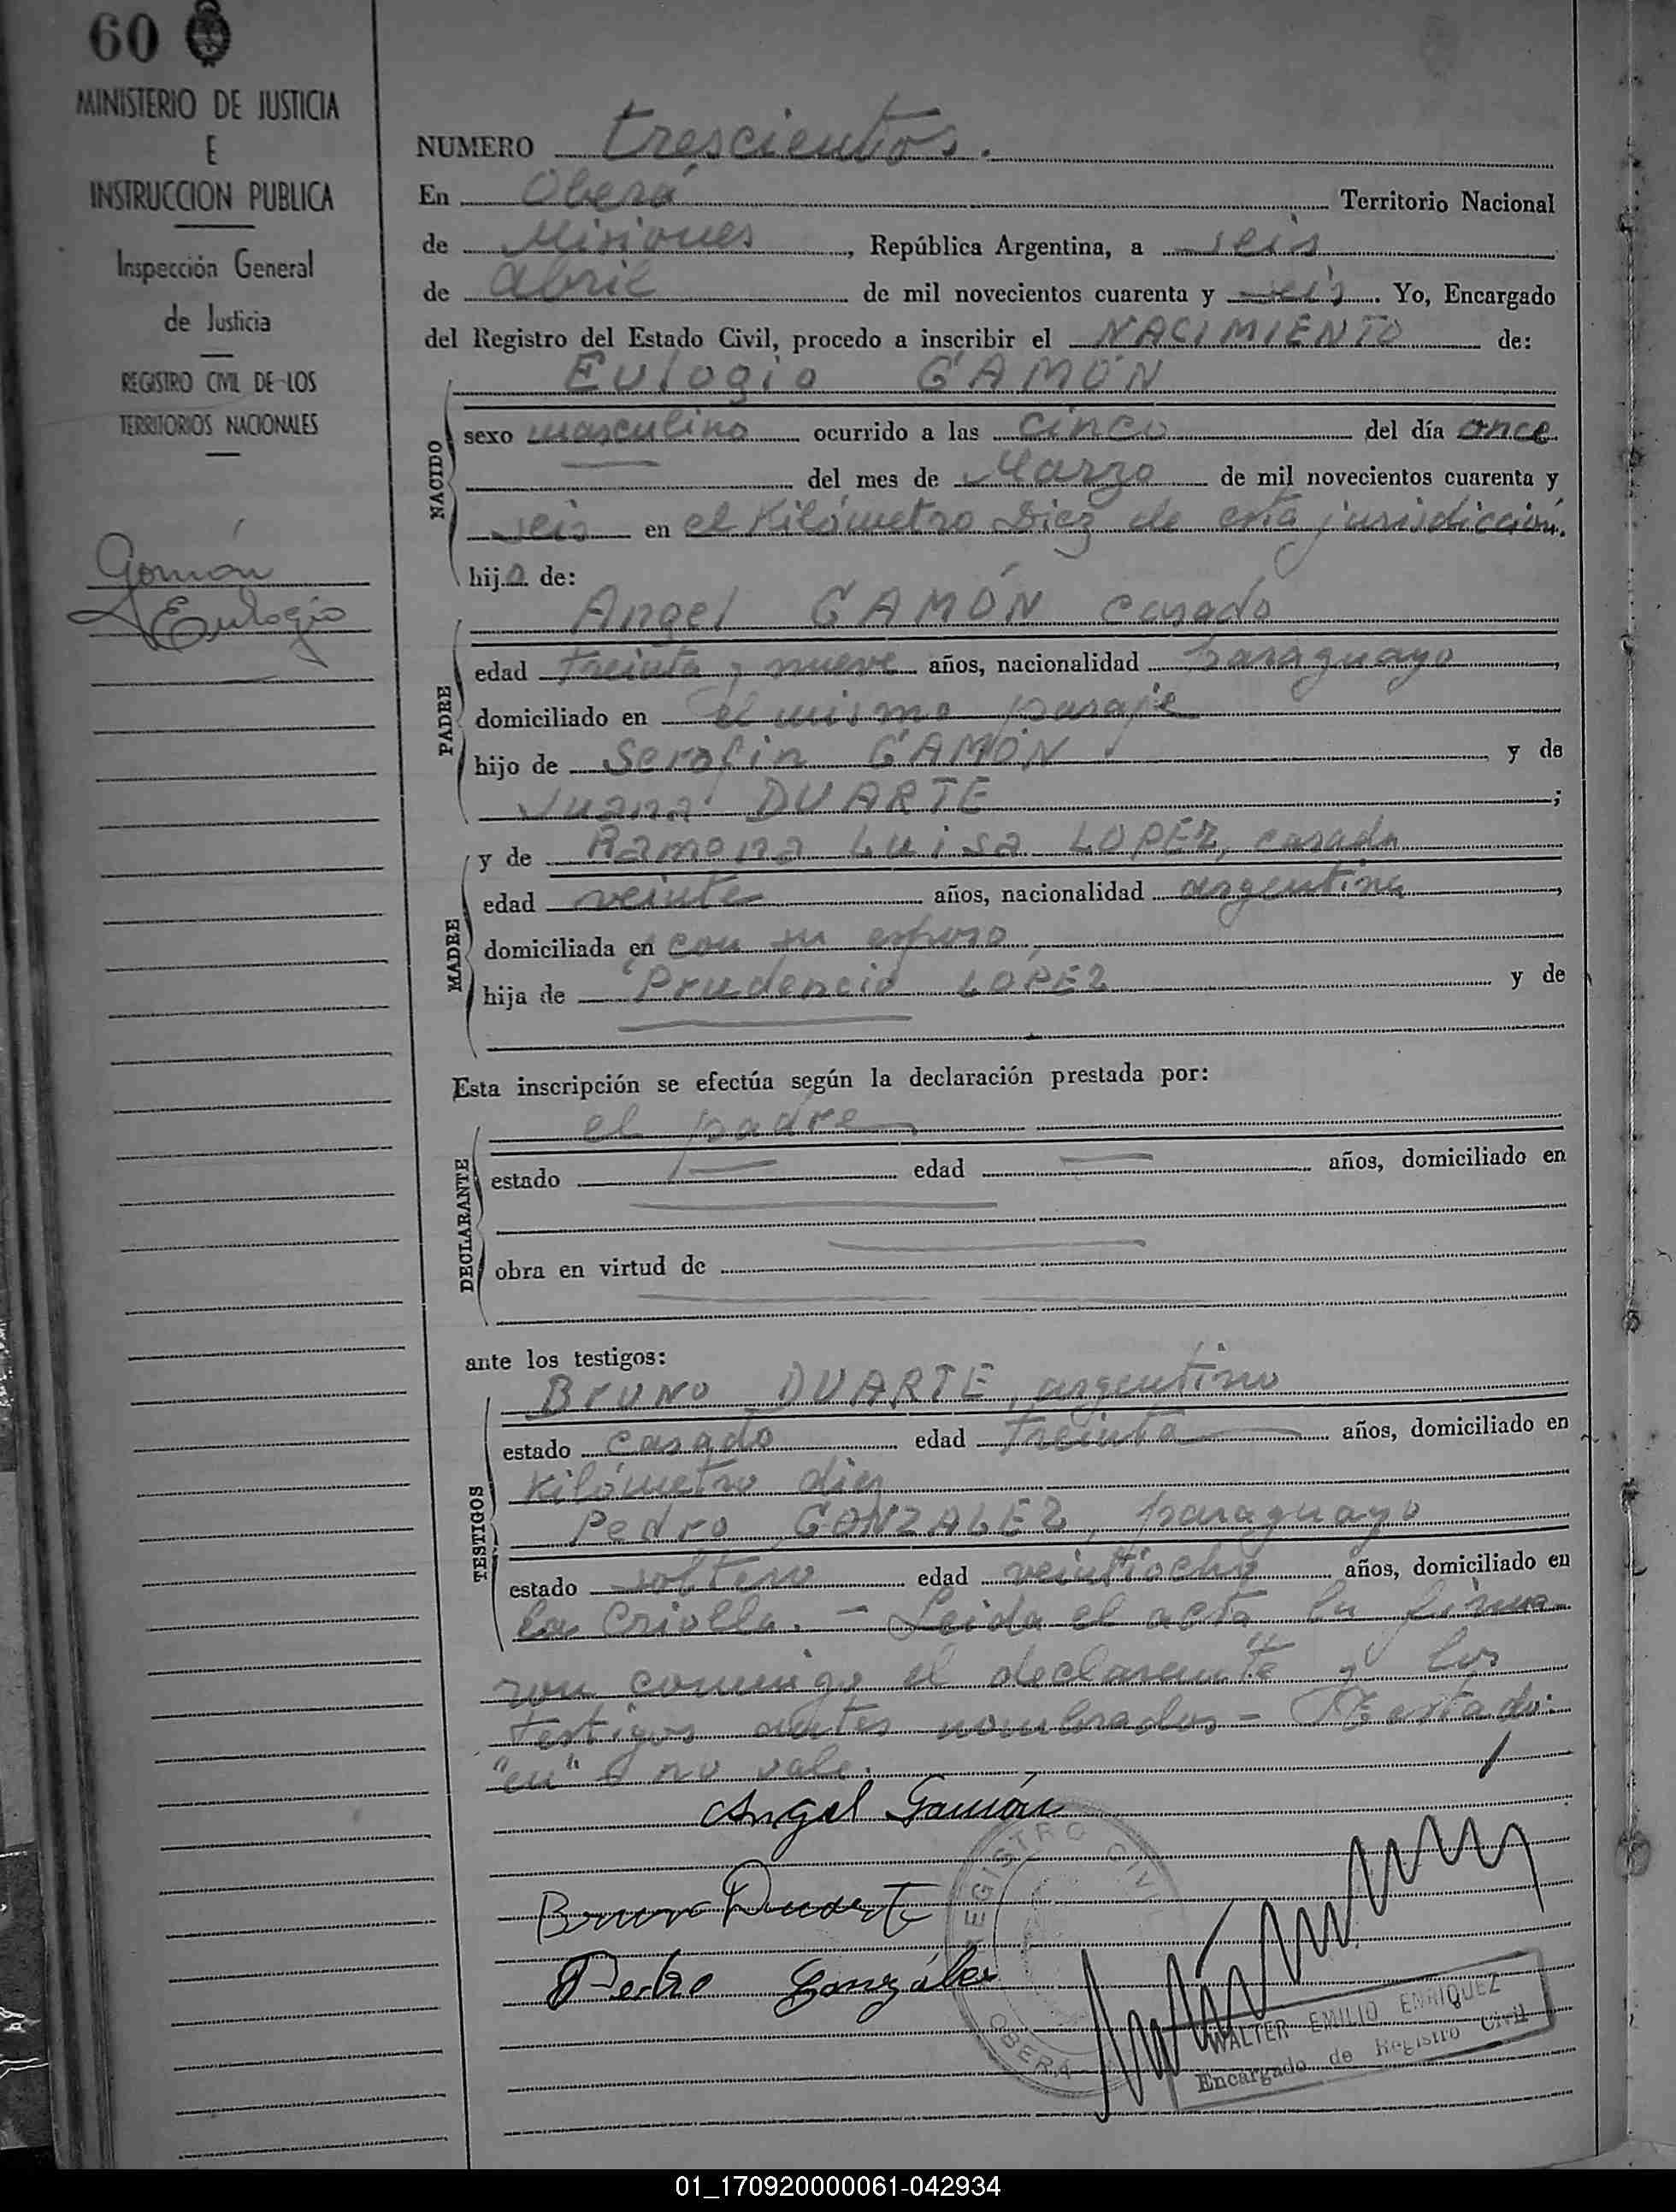 60
MINISTERIO DE JUSTICIA
E
INSTRUCCION PUBLICA
Inspección General
de Justicia
REGISTRO CIVIL DE LOS
TERRITORIOS NACIONALES
Gamón
Eulogio
NUMERO trescientos.
En Oberá Territorio Nacional
de Misiones, República Argentina, a seis
de abril de mil novecientos cuarenta y seis. Yo, Encargado
del Registro del Estado Civil, procedo a inscribir el NACIMIENTO de:
Eulogio GAMÓN
NACIDO
sexo masculino ocurrido a las cinco del día once
del mes de Marzo de mil novecientos cuarenta y
seis en el Kilómetro Diez de esta jurisdicción.
hijo de:
Angel GAMÓN casado
PADRE
edad treinta y nueve años, nacionalidad paraguayo,
domiciliado en el mismo paraje
hijo de Serafin GAMÓN y de
Juana DUARTE;
MADRE
y de Ramona Luisa LOPEZ, casada
edad veinte años, nacionalidad argentina,
domiciliada en con su esposo
hija de Prudencia LOPEZ y de
Esta inscripción se efectúa según la declaración prestada por:
el padre
DECLARANTE
estado edad años, domiciliado en
obra en virtud de
ante los testigos:
Bruno DUARTE, argentino
TESTIGOS
estado casado edad treinta años, domiciliado en
Kilómetro diez
Pedro GONZALEZ, paraguayo
estado soltero edad veintiocho años, domiciliado en
la Criolla. - Leida el acta la firma
ron conmigo el declarante y los
testigos antes nombrados - Testado:
"en" no vale.
Angel Gamón
Bruno Duarte
Pedro González
REGISTRO CIVIL
OBERA
WALTER EMILIO ENRIQUEZ
Encargado de Registro Civil
01_170920000061-042934